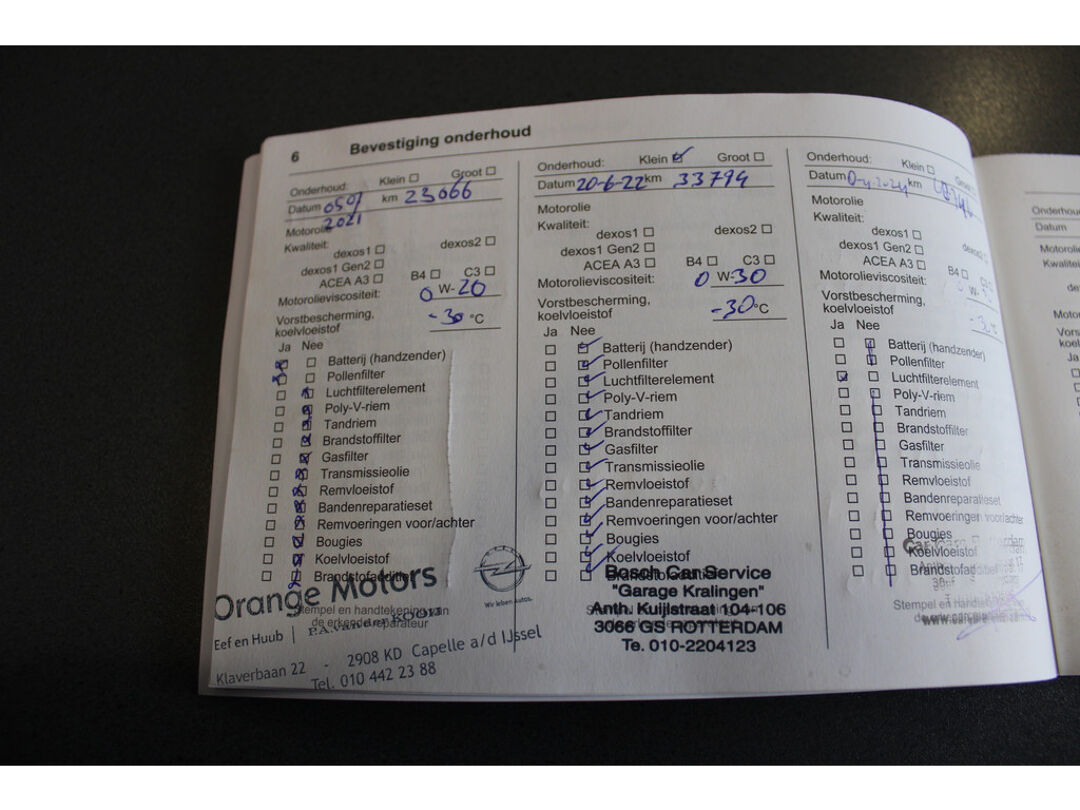 6 Bevestiging onderhoud
Onderhoud: Klein Groot
Datum 0507 km 23066
2021
Motorolie
Kwaliteit:
dexos1 dexos2
dexos1 Gen2
ACEA A3 B4 C3
Motorolieviscositeit: 0 W-20
Vorstbescherming,
koelvloeistof -30 °C
Ja Nee
Batterij (handzender)
Pollenfilter
Luchtfilterelement
Poly-V-riem
Tandriem
Brandstoffilter
Gasfilter
Transmissieolie
Remvloeistof
Bandenreparatieset
Remvoeringen voor/achter
Bougies
Koelvloeistof
Brandstofadditief
Stempel en handtekening van
de erkende reparateur
Orange Motors
Wir leben Autos.
Eef en Huub
P.A. van der KOOIJ
Klaverbaan 22 - 2908 KD Capelle a/d IJssel
Tel. 010 442 23 88
Onderhoud: Klein Groot
Datum 20-6-22 km 33794
Motorolie
Kwaliteit:
dexos1 dexos2
dexos1 Gen2
ACEA A3 B4 C3
Motorolieviscositeit: 0 W-30
Vorstbescherming,
koelvloeistof -30 °C
Ja Nee
Batterij (handzender)
Pollenfilter
Luchtfilterelement
Poly-V-riem
Tandriem
Brandstoffilter
Gasfilter
Transmissieolie
Remvloeistof
Bandenreparatieset
Remvoeringen voor/achter
Bougies
Koelvloeistof
Brandstofadditief
Bosch Car Service
"Garage Kralingen"
Anth. Kuijlstraat 104-106
3066 GS ROTTERDAM
Te. 010-2204123
Onderhoud: Klein Groot
Datum km
Motorolie
Kwaliteit:
dexos1
dexos1 Gen2
ACEA A3 B4
Motorolieviscositeit: W-
Vorstbescherming,
koelvloeistof
Ja Nee
Batterij (handzender)
Pollenfilter
Luchtfilterelement
Poly-V-riem
Tandriem
Brandstoffilter
Gasfilter
Transmissieolie
Remvloeistof
Bandenreparatieset
Remvoeringen voor/achter
Bougies
Koelvloeistof
Stempel en
Datum